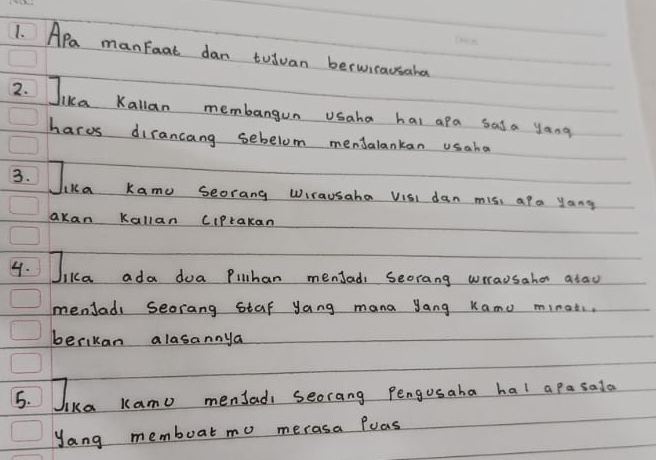 1. Apa manfaat dan tujuan berwirausaha
2. Jika Kalian membangun usaha hal apa saja yang
harus dirancang sebelum menjalankan usaha
3. Jika kamu seorang wirausaha visi dan misi apa yang
akan kalian ciptakan
4. Jika ada dua pilihan menjadi seorang wirausaha atau
menjadi seorang staf yang mana yang kamu minati.
berikan alasannya
5. Jika kamu menjadi seorang pengusaha hal apasaja
yang membuat mu merasa puas